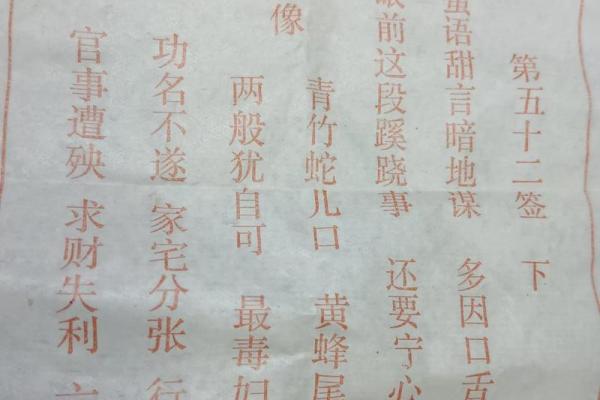 第五十二签 下
语甜言暗地谋 多因口舌
眼前这段蹊跷事 还要宁心
像
青竹蛇儿口 黄蜂尾
两般犹自可 最毒妇
功名不遂 家宅分张 行
官事遭殃 求财失利